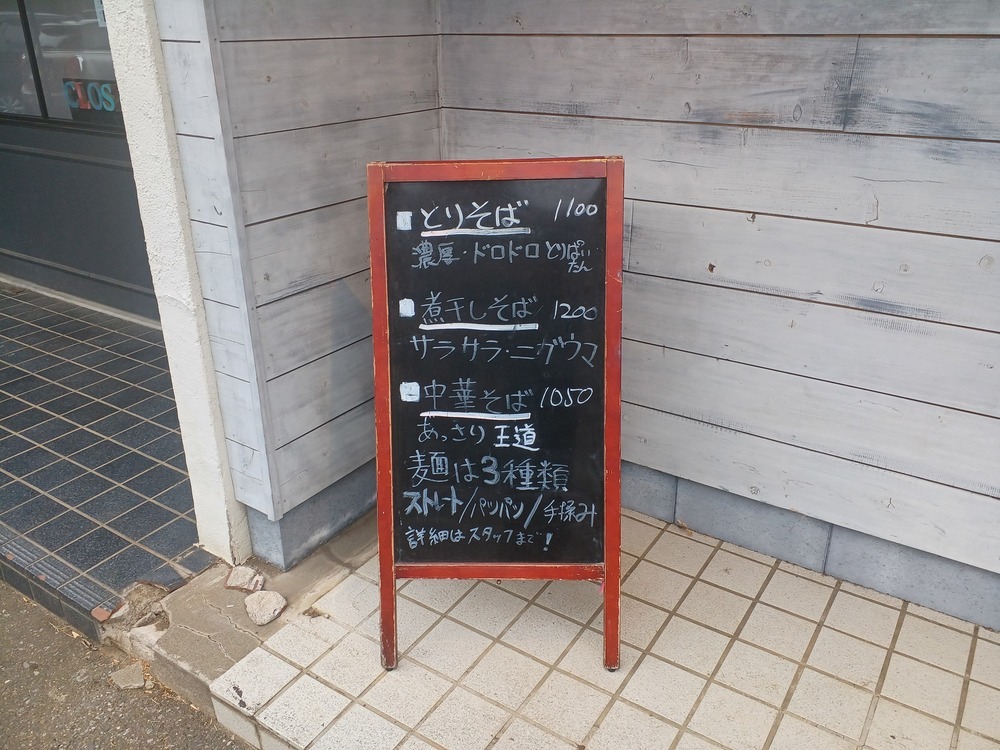 CLOS
とりそば 1100
濃厚・ドロドロ とりぱいたん
煮干しそば 1200
サラサラ・ニガウマ
中華そば 1050
あっさり 王道
麺は3種類
ストレート/パツパツ/手揉み
詳細はスタッフまで!